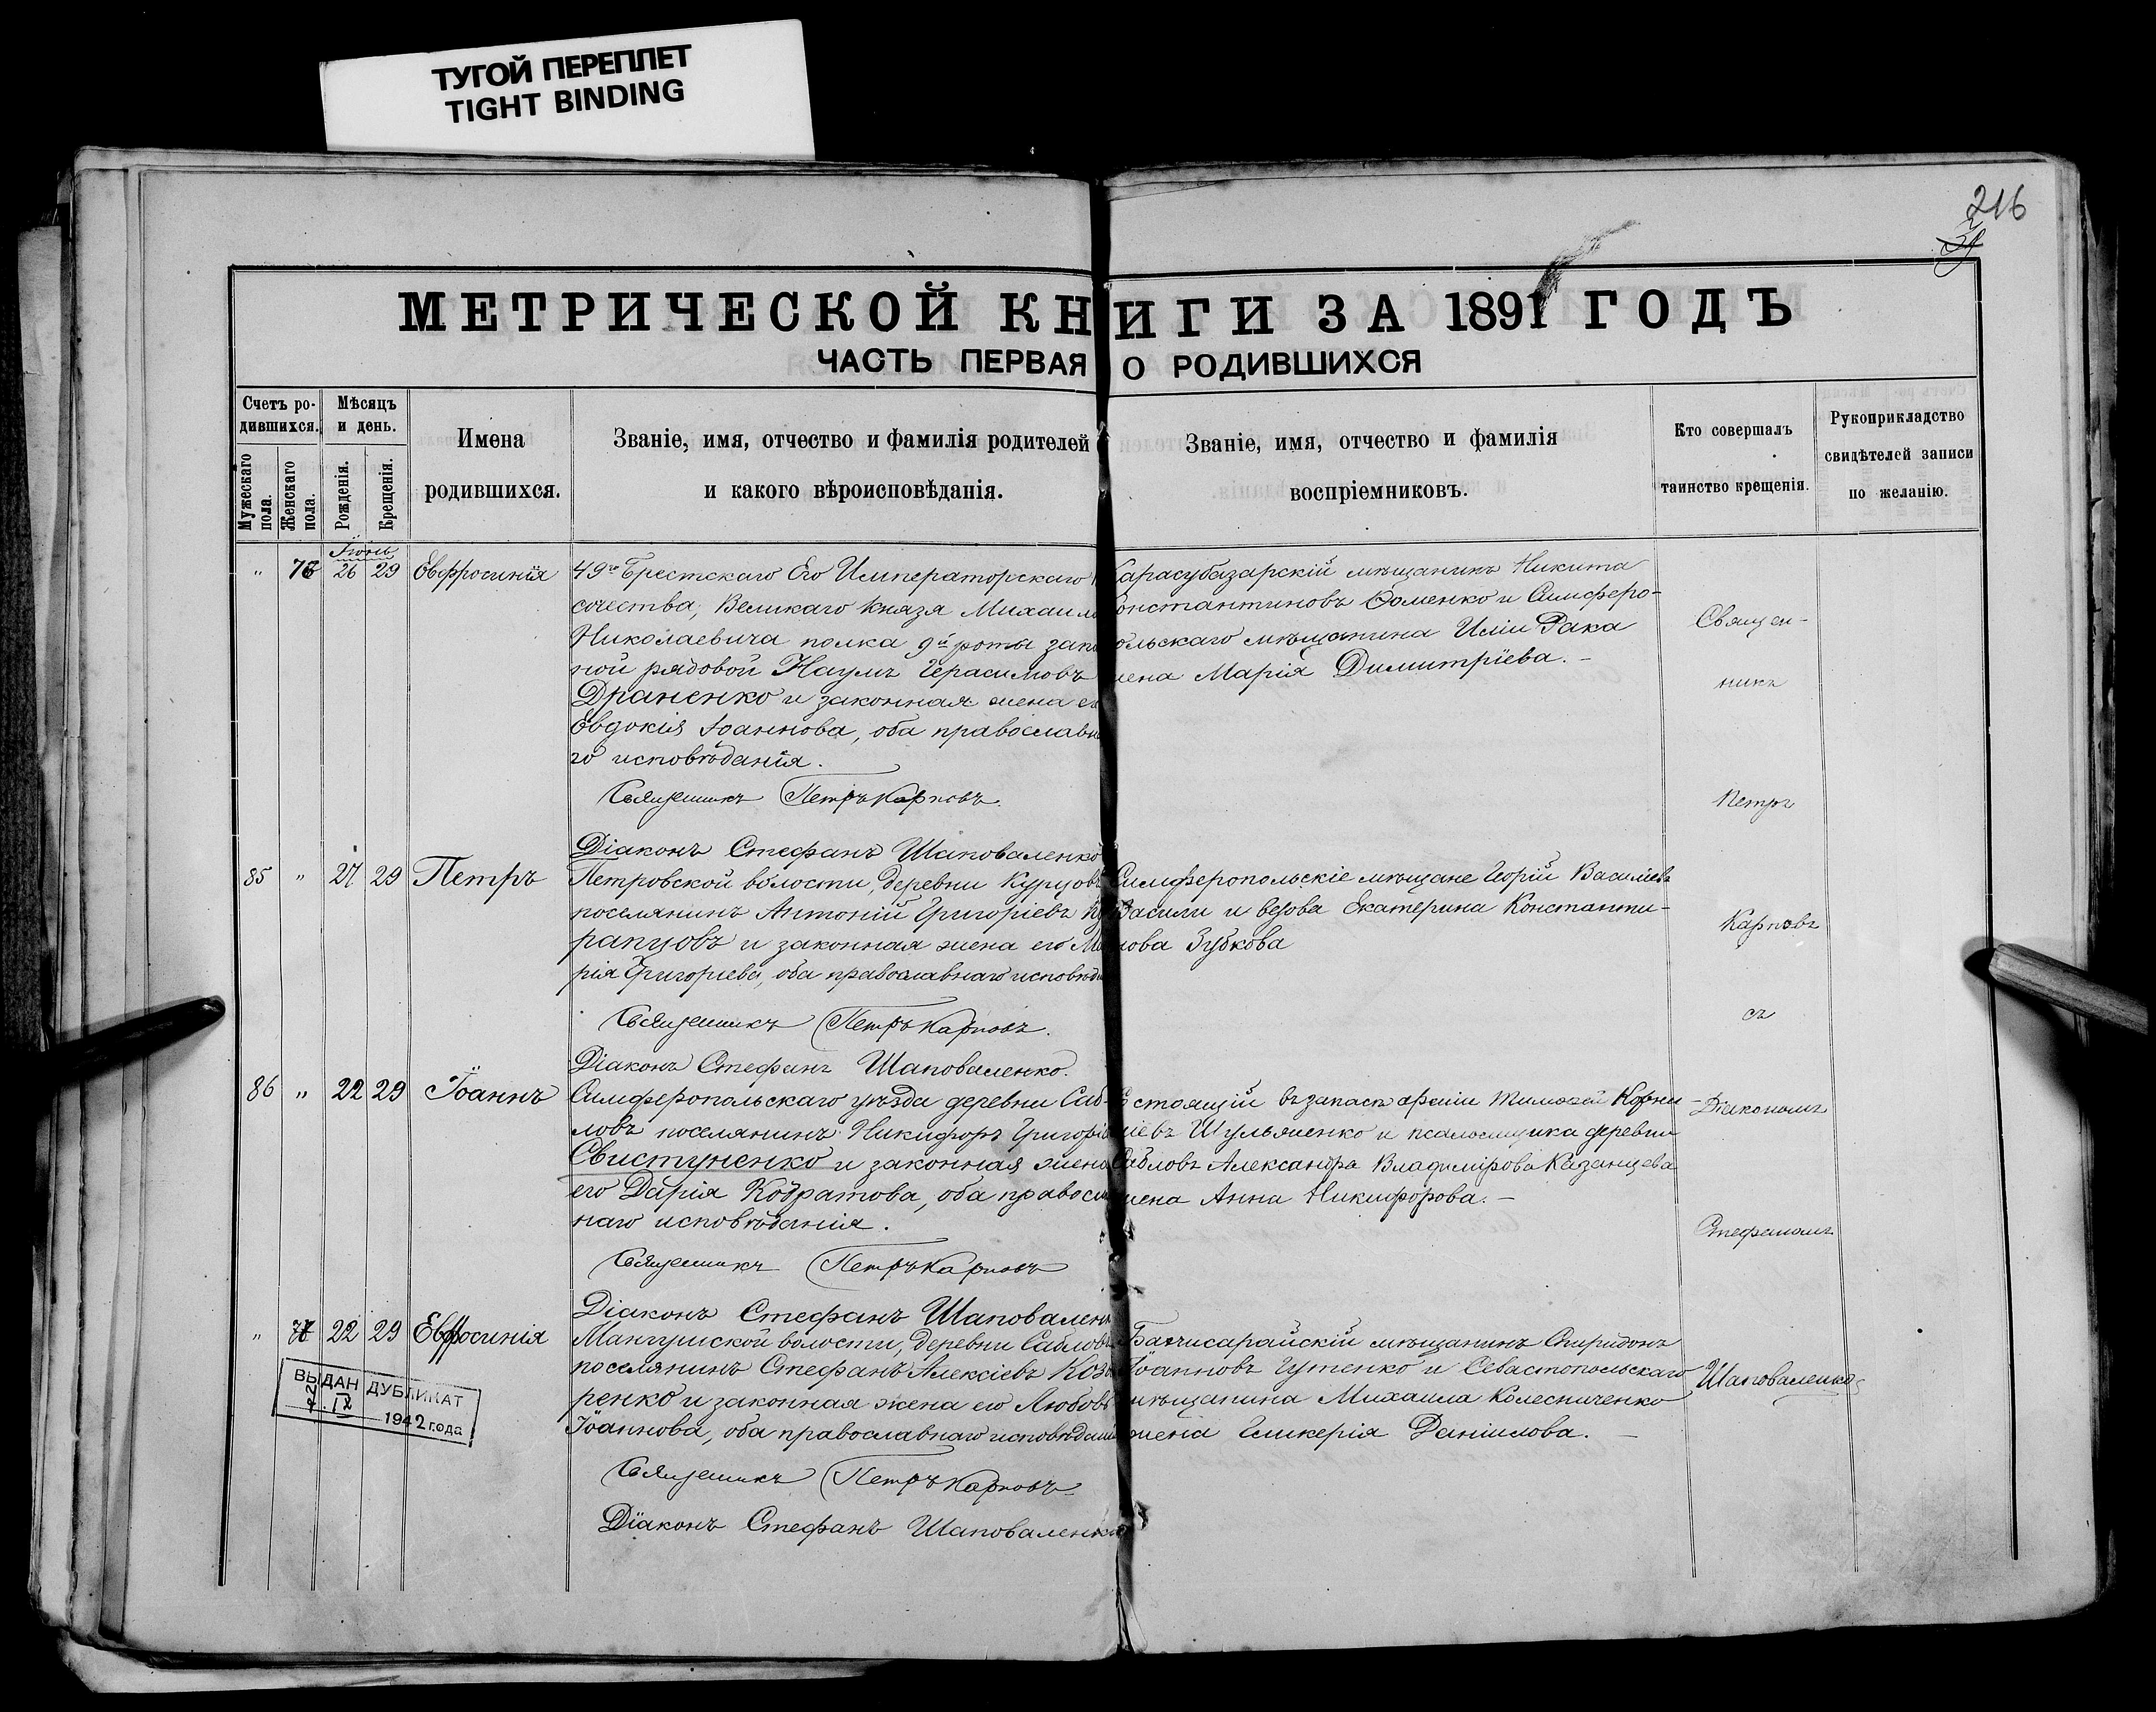 ТУГОЙ ПЕРЕПЛЕТ
TIGHT BINDING
216
МЕТРИЧЕСКОЙ КНИГИ ЗА 1891 ГОДЪ
ЧАСТЬ ПЕРВАЯ О РОДИВШИХСЯ
Счетъ ро-
дившихся.
Мужескаго пола.
Женскаго пола.
Мѣсяцъ
и день.
Рожденія.
Крещенія.
Имена
родившихся.
Званіе, имя, отчество и фамилія родителей
и какого вѣроисповѣданія.
Званіе, имя, отчество и фамилія
воспріемниковъ.
Кто совершалъ
таинство крещенія.
Рукоприкладство
свидѣтелей записи
по желанію.
Іюнь
" 76 26 29 Евфросинія
49го Брестскаго Его Императорскаго
сочества, Великаго Князя Михаил
Николаевича полка 9й роты запа
ной рядовой Наумъ Герасимовъ
Драненко и законная жена е
Евдокія Іоаннова, оба православн
го исповѣданія.
Священникъ Петръ Карповъ.
Діаконъ Стефанъ Шаповаленко
Карасубазарскій мѣщанинъ Никита
онстантиновъ Фоменко и Симферо-
ольскаго мѣщанина Иліи Рака
жена Марія Димитріева. –
85 " 27 29 Петръ
Петровской волости, деревни Курцовъ
поселянинъ Антоній Григоріевъ
рапцовъ и законная жена его Ма
рія Григорьева, оба православнаго исповѣда
Священникъ Петръ Карповъ.
Діаконъ Стефанъ Шаповаленко.
Симферопольскіе мѣщане Георгій Василіевъ
Васили и вдова Екатерина Константи-
нова Зубкова
86 " 22 29 Іоаннъ
Симферопольскаго уѣзда деревни Саб-
ловъ поселянинъ Никифоръ Григорі
Свистуненко и законная жена
его Дарія Кодратова, оба правосл
наго исповѣданія.
Священникъ Петръ Карповъ
Діаконъ Стефанъ Шаповален
стоящій въ запасѣ арміи Тимофей Корни-
ліевъ Шульженко и псаломщика деревни
Сабловъ Александра Владимірова Казанцева
жена Анна Никифорова. –
" 77 22 29 Евфросинія
Мангушской волости, деревни Сабловъ
поселянинъ Стефанъ Алексіевъ Коз
ренко и законная жена его Любовь
Іоаннова, оба православнаго исповѣдані
Священникъ Петръ Карповъ
Діаконъ Стефанъ Шаповаленко
Бахчисарайскій мѣщанинъ Спиридонъ
Іоанновъ Гутенко и Севастопольскаго
мѣщанина Михаила Колесниченко
жена Гликерія Даніилова. –
Священ-
никъ
Петръ
Карповъ
съ
Діакономъ
Стефаномъ
Шаповаленко
ВЫДАН ДУБЛИКАТ
22.IX 1942 года